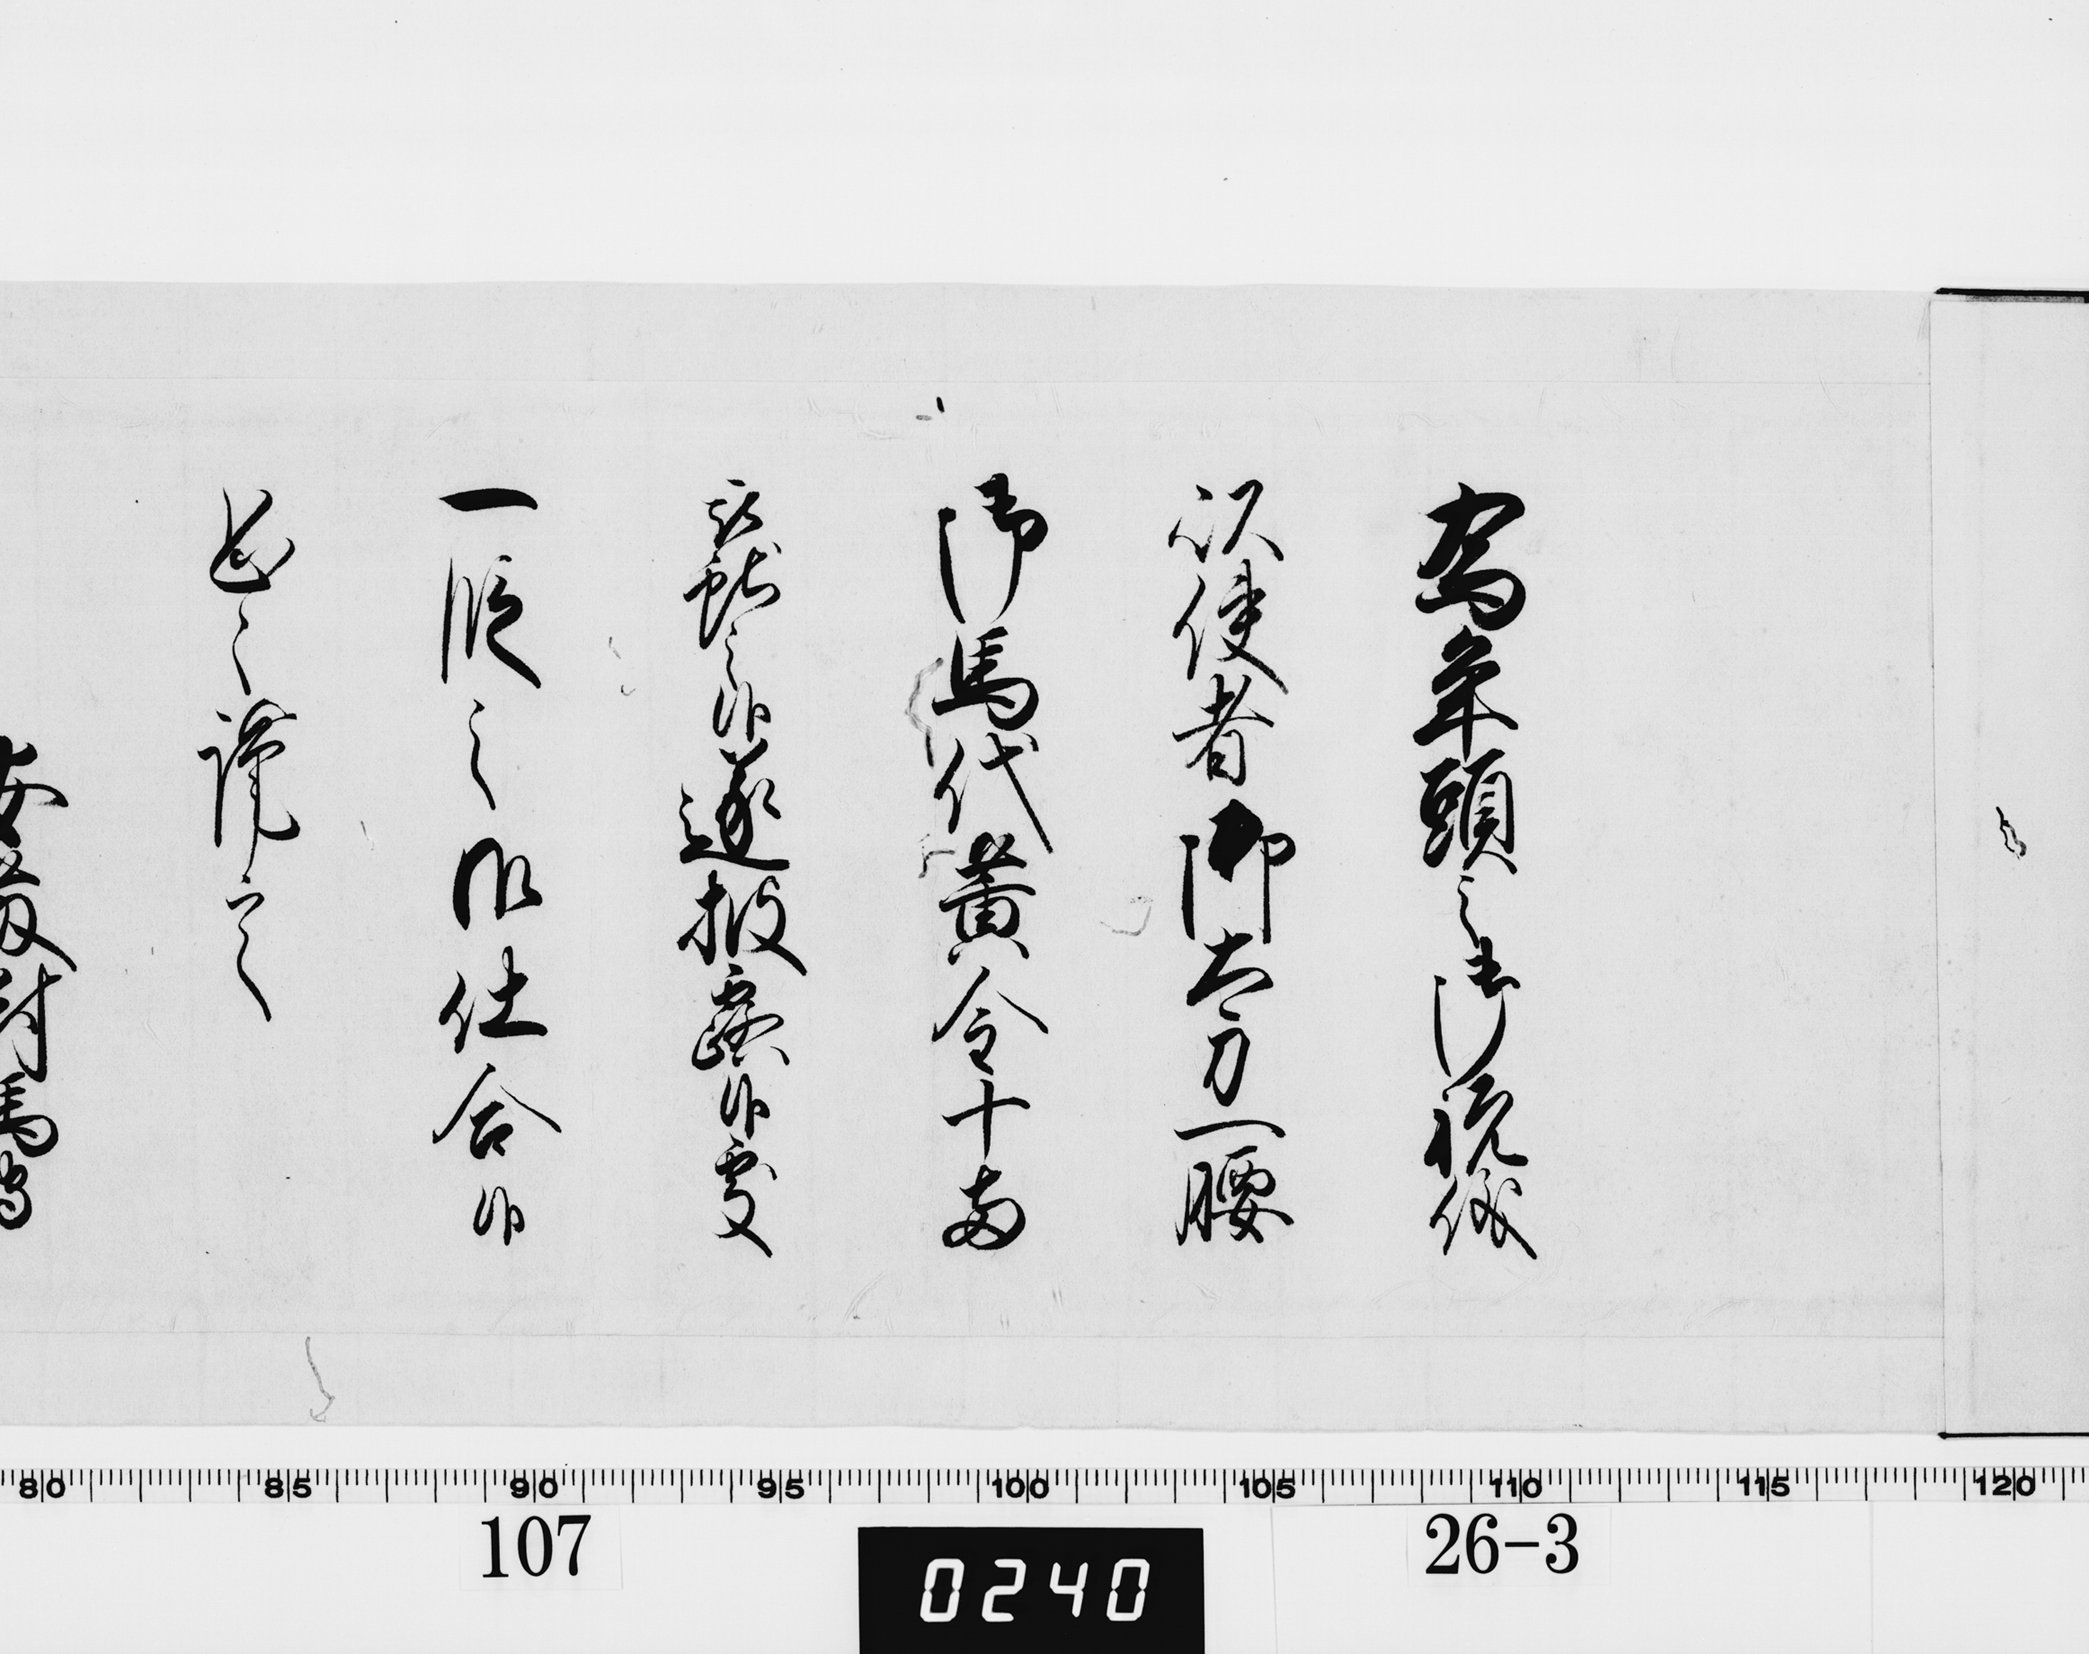 為年頭之御祝儀
以使者御太刀一腰
御馬代黄金十両
献之候遂披露候処
一段之御仕合候
恐々謹言
安藤対馬守
80 85 90 95 100 105 110 115 120
107
0240
26-3